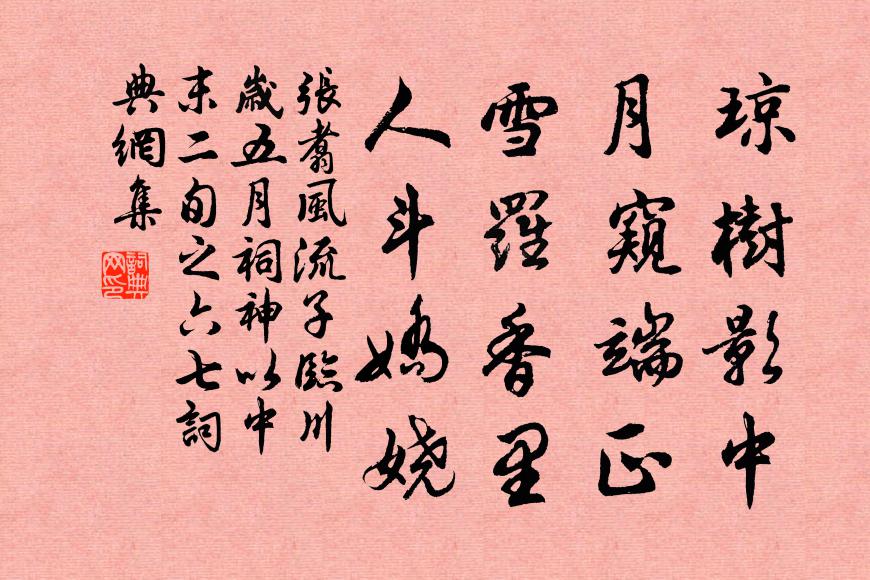 琼樹影中
月窺端正
雪羅香里
人斗嬌娆
張翥風流子臨川
歲五月祠神以中
末二旬之六七詞
典網集
詞典網印